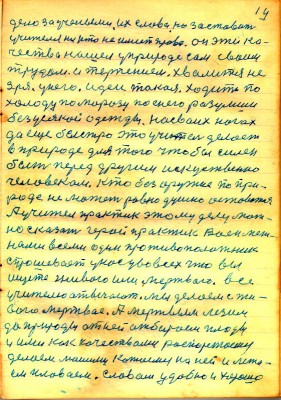 19
дело за учеными. их слова, но заставит
учителя ни кто не имеет право. он эти ка-
чества нашел у природе сам своим
трудом. и терпением. хвалится не
зря. у него. идеи такая. ходить по
холоду по морозу по снегу разумши
без всякой одежды. на своих ногах
да еще быстро это учитель делает
в природе для того чтобы силен
быть перед другим искуственно
человеком. Кто без оружие по при-
роде не может равно душно остаться
А учителя практик этому делу мож-
но сказать герой практик Военмен-
нами всеми один противоположник
спрашевает у нас у во всех что вы
ищете живого или мертвого. все
учителю отвечают. мы делаем с жи-
вого мертвое. А мертвым лезим
до природы от ней отбираем плоды
и ими как качествами распоряжаемся
делаем машину Катаемся на ней и лета-
ем плаваем. словом удобно и хорошо